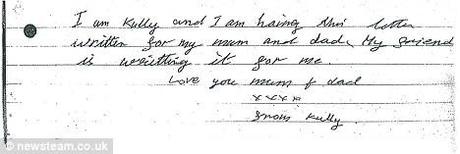 I am Kully and I am having this letter
written for my mum and dad. My friend
is writting it for me.
Love you mum & dad
xxxx
From Kully.
© newsteam.co.uk